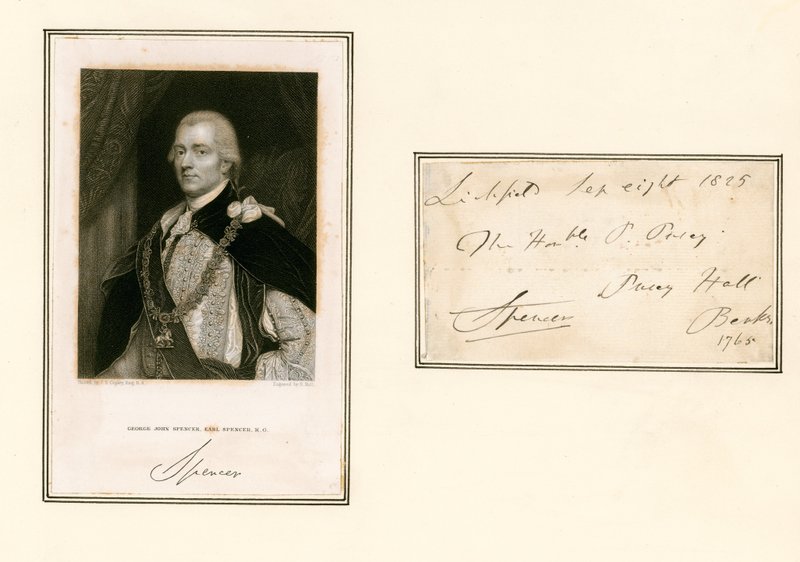 Painted by J. S. Copley, Esq. R. A.
Engraved by H. Robt.
GEORGE JOHN SPENCER, EARL SPENCER, K.G.
Spencer
Lichfield Sep eight 1825
The Honble P. Pusey
Pusey Hall
Spencer
Berks.
1765